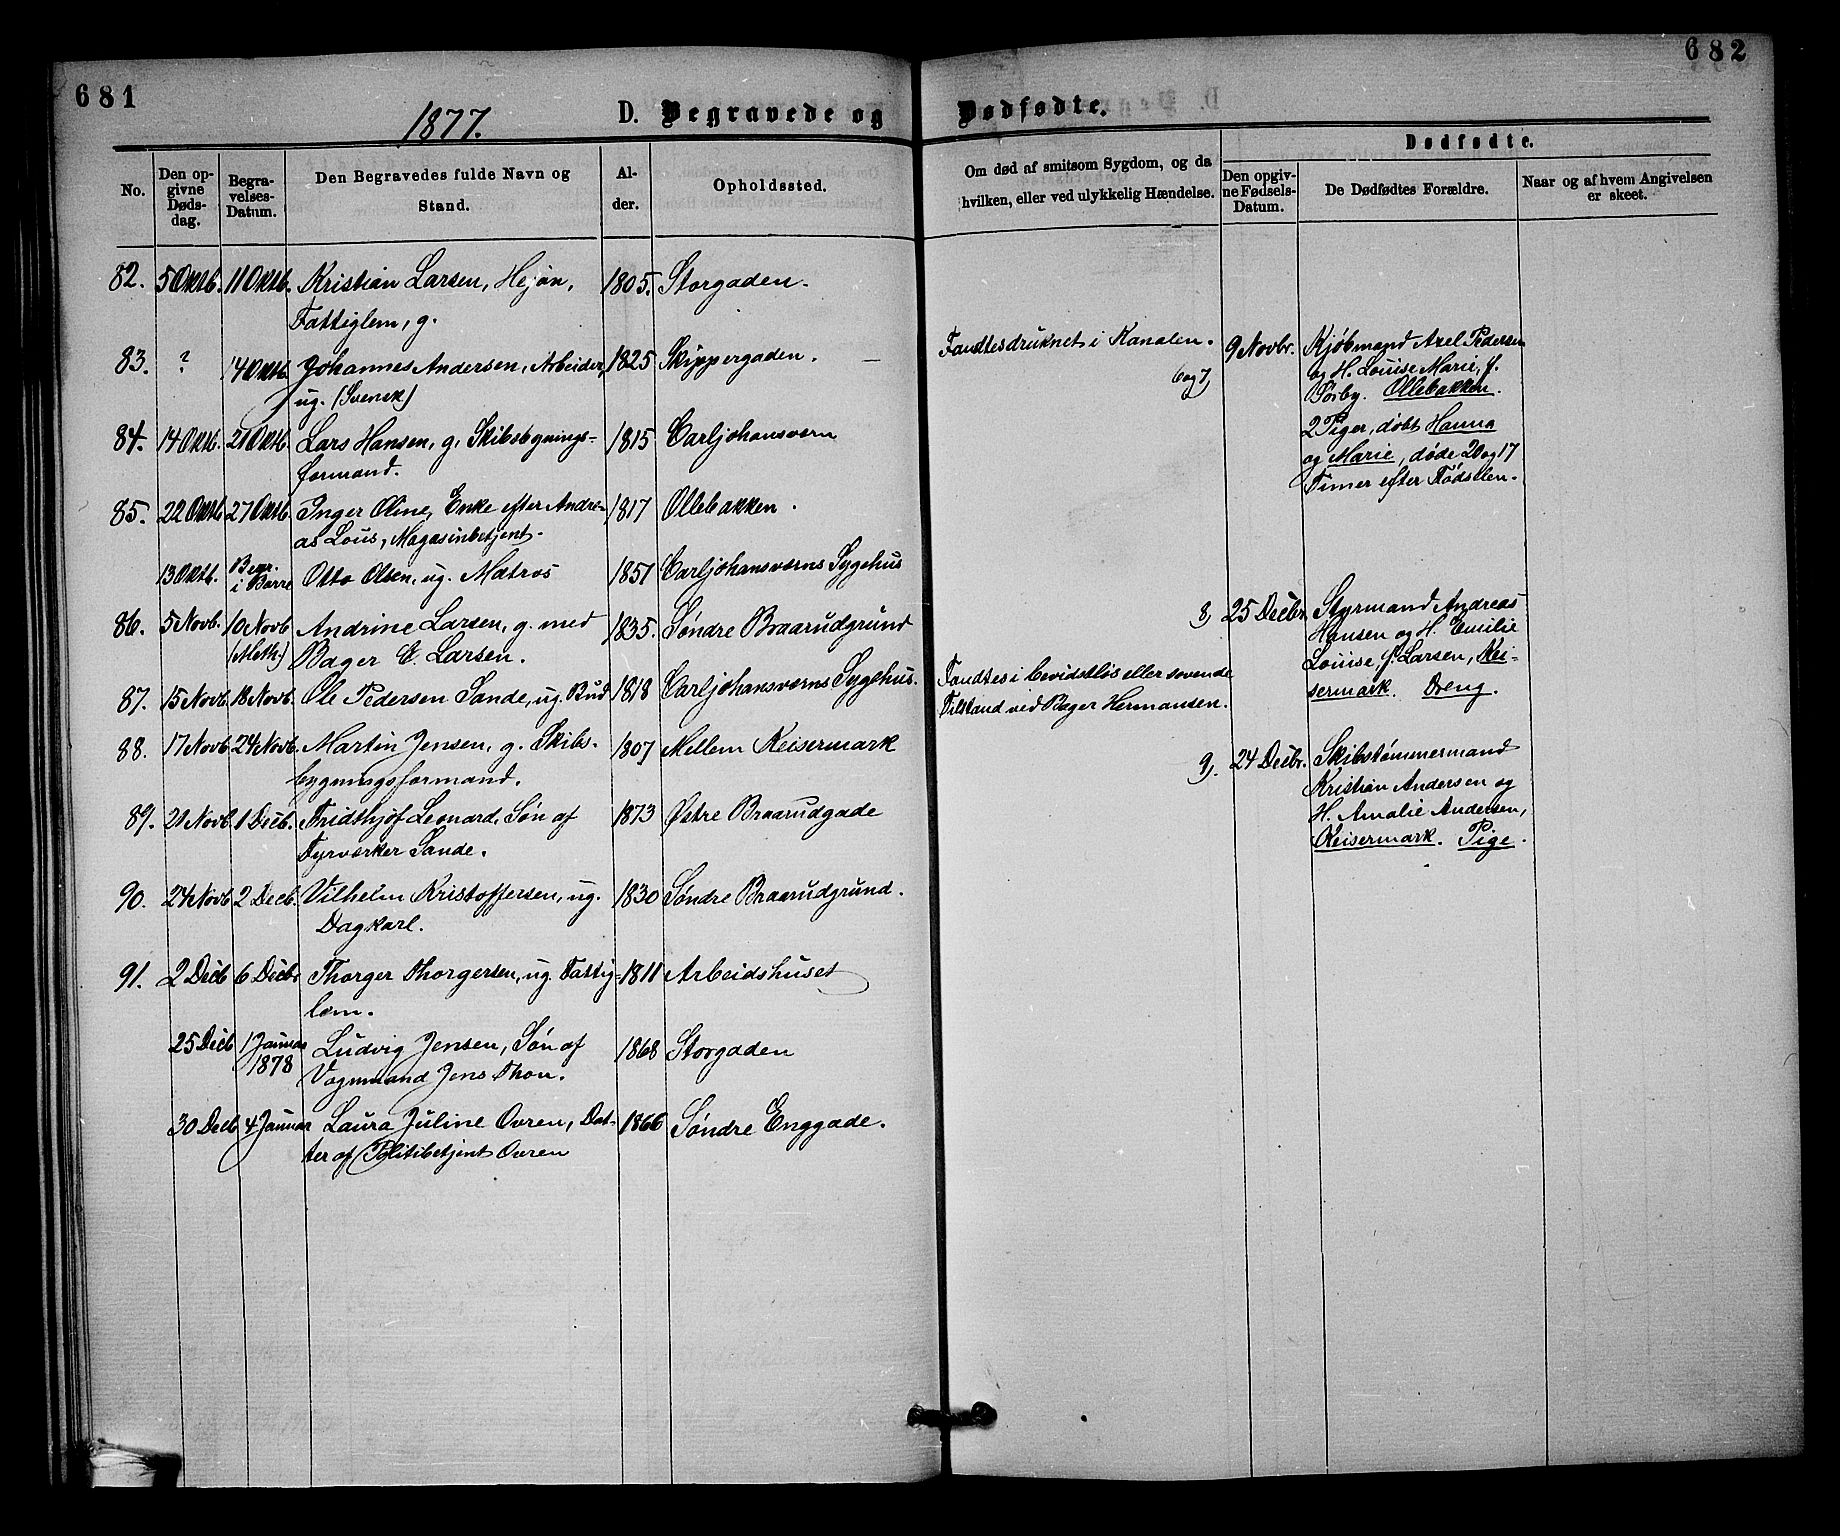 681
682
1877.
D. Begravede og Dødfødte.
No.
Den opgivne Dødsdag.
Begravelses-Datum.
Den Begravedes fulde Navn og Stand.
Alder.
Opholdssted.
Om død af smitsom Sygdom, og da hvilken, eller ved ulykkelig Hændelse.
Dødfødte.
Den opgivne Fødsels-Datum.
De Dødfødtes Forældre.
Naar og af hvem Angivelsen er skeet.
82. 5 Oktb. 11 Oktb. Kristian Larsen, Hejøn, 1805. Storgaden.
Fattiglem, g.
83. ? 14 Oktb. Johannes Andersen, Arbeider, 1825 Skippergaden. —
ug. (Svensk)
84. 14 Oktb. 21 Oktb. Lars Hansen, g. Skibsbygnings- 1815 Carljohansværn
formand.
85. 22 Oktb 27 Oktb. Inger Oline, Enke efter Andre- 1817 Ollebakken.
as Lous, Magasinbetjent.
13 Oktb. Begr. i Borre Otto Olsen, ug. Matros 1857 Carljohansværns Sygehus
86. 5 Novb. 10 Novb (Meth.) Andrine Larsen, g. med 1835. Søndre Braarudgrund
Bager E. Larsen.
87. 15 Novb. 18 Novb. Ole Pedersen Sande, ug. Bud 1818 Carljohansværns Sygehus.
88. 17 Novb. 24 Novb. Martin Jensen, g. Skibs- 1807 Mellem Keisermark
bygningsformand.
89. 21 Novb. 1 Decb. Fridthjof Leonard, Søn af 1873 Østre Braarudgade
Fyrværker Sande.
90. 24 Novb. 2 Decb. Vilhelm Kristoffersen, ug. 1830 Søndre Braarudgrund.
Dagkarl.
91. 2 Decb 6 Decbr Thorger Thorgersen, ug. Fattig- 1811 Arbeidshuset
lem.
25 Decb 1 Januar 1878 Ludvig Jensen, Søn af 1868 Storgaden
Vognmand Jens Thon.
30 Decb 4 Januar Laura Juline Ovren, Dat- 1866 Søndre Enggade.
ter af Politibetjent Ovren
Fandtes druknet i Kanalen.
6 og 7)
9 Novbr.
Kjøbmand Axel Pedersen
og H. Louise Marie, f.
Sørby. Ollebakken.
2 Piger, døbt Hanna
og Marie, døde 20 og 17
Timer efter Fødselen.
8) 25 Decbr.
Styrmand Andreas
Hansen og H. Emilie
Louise, f. Larsen, Kei-
sermark. Dreng.
Fandtes i bevidstløs eller sovende
Tilstand ved Bager Hermansen.
9). 24 Decbr.
Skibstømmermand
Kristian Andersen og
H. Amalie Andersen,
Keisermark. Pige.